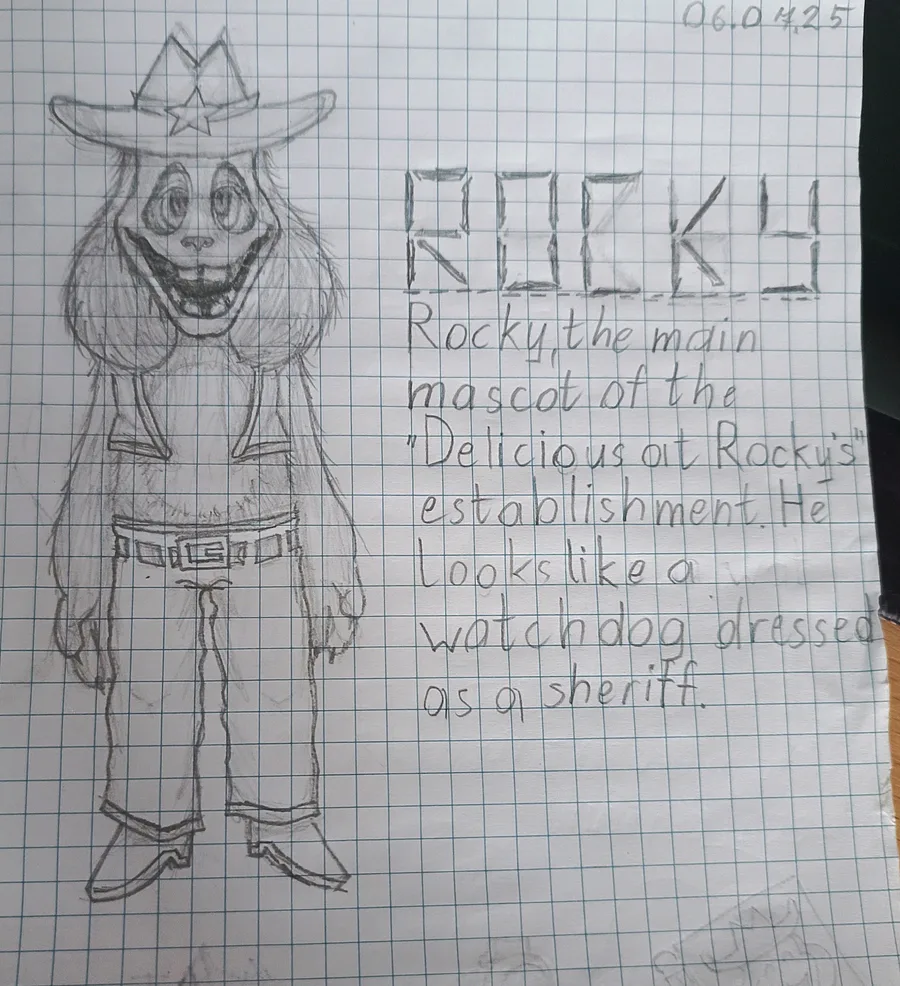 06.04.25
ROCKY
Rocky, the main
mascot of the
"Delicious at Rocky's"
establishment. He
Looks like a
watchdog dressed
as a sheriff.